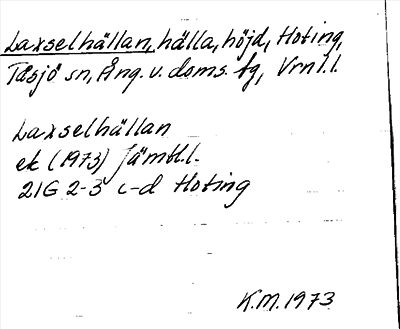 Laxselhällan, hälla, höjd, Hoting,
Tåsjö sn, Ång. v. doms. fg, Vrnl.l.
Laxselhällan
ek (1973) Jämtl.l.
21G 2-3 c-d Hoting
K.M. 1973